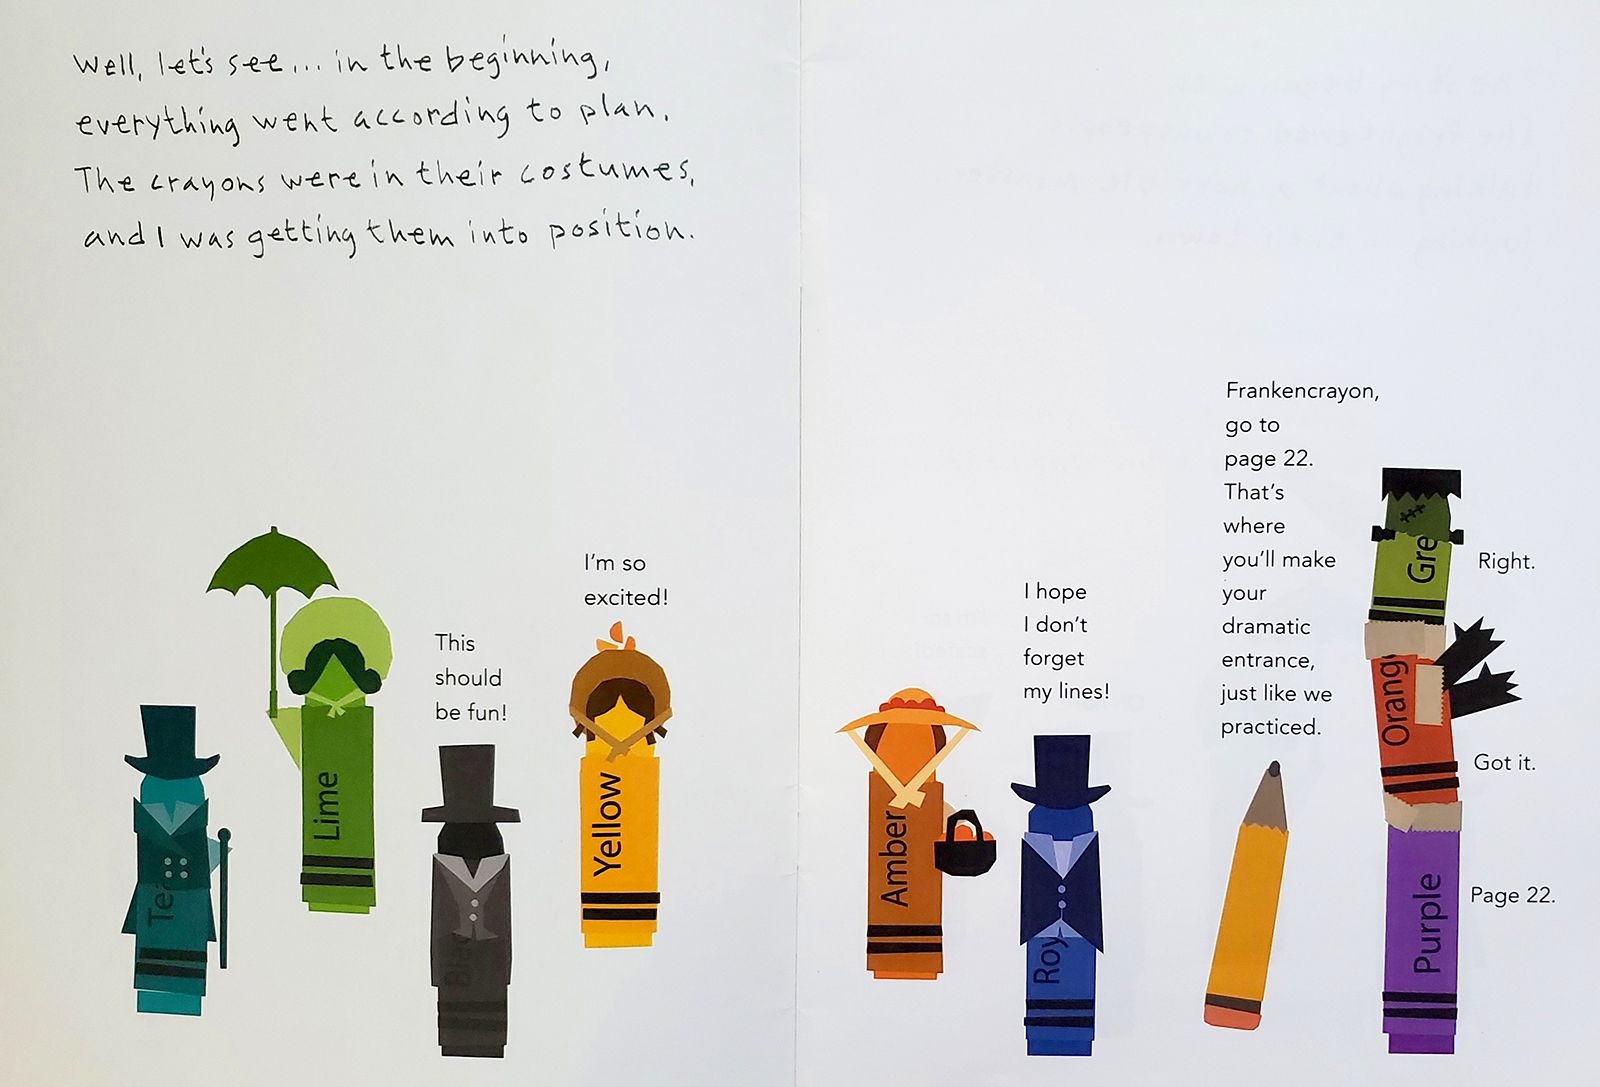 Well, let's see... in the beginning,
everything went according to plan.
The crayons were in their costumes,
and I was getting them into position.
This
should
be fun!
I'm so
excited!
Lime
Yellow
I hope
I don't
forget
my lines!
Amber
Roy
Frankencrayon,
go to
page 22.
That's
where
you'll make
your
dramatic
entrance,
just like we
practiced.
Gre
Right.
Orang
Got it.
Purple
Page 22.
Tea
Bla